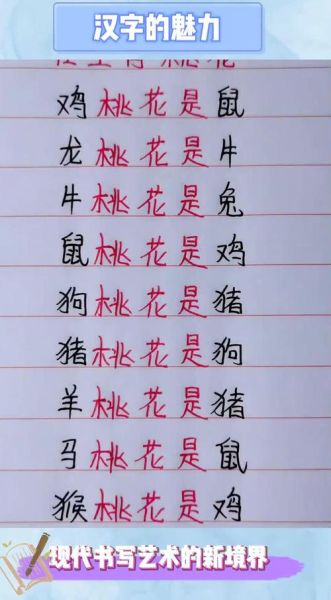 汉字的魅力
鸡桃花是鼠
龙桃花是牛
牛桃花是兔
鼠桃花是鸡
狗桃花是猪
猪桃花是狗
羊桃花是猪
马桃花是鼠
猴桃花是鸡
现代书写艺术的新境界